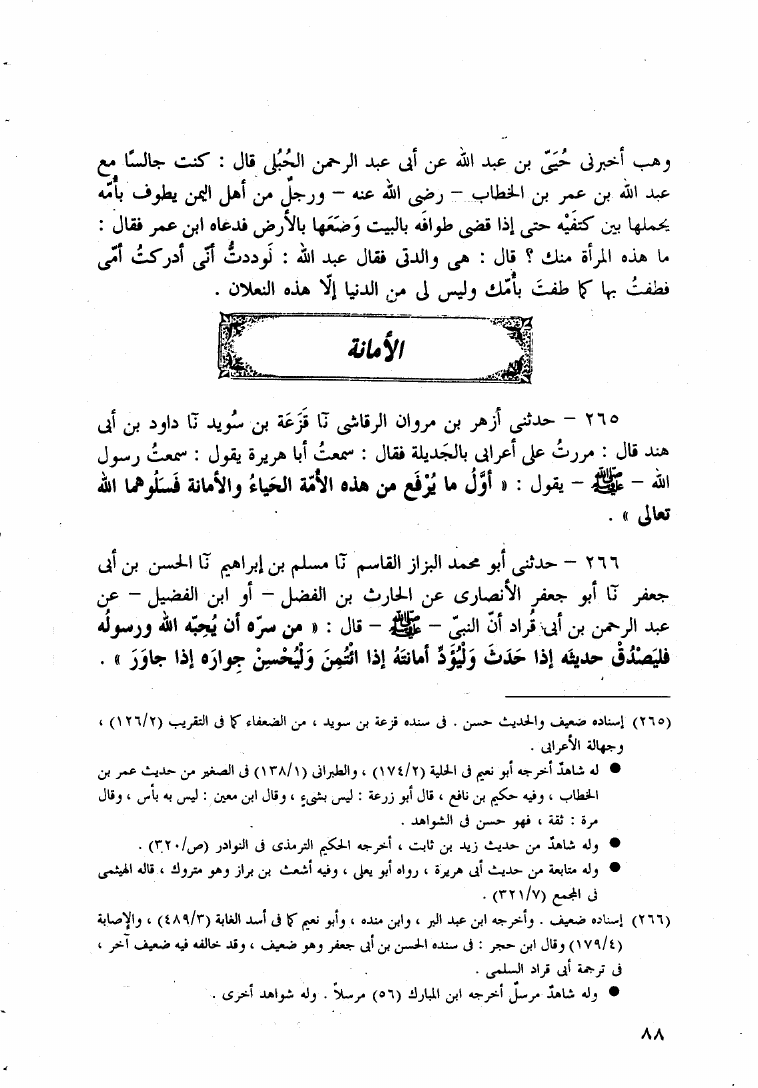 وهب أخبرنى حُيَىّ بن عبد الله عن أبى عبد الرحمن الحُبُلى قال : كنت جالسًا مع
عبد الله بن عمر بن الخطاب – رضى الله عنه – ورجلٌ من أهل اليمن يطوف بأُمّه
يحملها بين كتفَيْه حتى إذا قضى طوافَه بالبيت وَضَعَها بالأرض فدعاه ابن عمر فقال :
ما هذه المرأة منك ؟ قال : هى والدتى فقال عبد الله : لَوددتُّ أنّى أدركتُ أمّى
فطفتُ بها كما طفتَ بأُمّك وليس لى من الدنيا إلّا هذه النعلان .
الأمانة
٢٦٥ – حدثنى أزهر بن مروان الرقاشى نَا قَزَعَة بن سُويد نَا داود بن أبى
هند قال : مررتُ على أعرابى بالجَديلة فقال : سمعتُ أبا هريرة يقول : سمعتُ رسول
الله – ﷺ – يقول : « أوَّلُ ما يُرْفَع من هذه الأمّة الحَياءُ والأمانة فَسَلُوهُما الله
تعالى » .
٢٦٦ – حدثنى أبو محمد البزاز القاسم نَا مسلم بن إبراهيم نَا الحسن بن أبى
جعفر نَا أبو جعفر الأنصارى عن الحارث بن الفضل – أو ابن الفضيل – عن
عبد الرحمن بن أبى قُراد أنّ النبىّ – ﷺ – قال : « من سرّه أن يُحِبّه الله ورسولُه
فليَصْدُقْ حديثَه إذا حَدَثَ وَلْيُؤَدِّ أمانتَهُ إذا ائْتُمِنَ وَلْيُحْسِنْ جِوارَه إذا جاوَرَ » .
(٢٦٥) إسناده ضعيف والحديث حسن . فى سنده قزعة بن سويد ، من الضعفاء كما فى التقريب (١٢٦/٢) ،
وجهالة الأعرابى .
● له شاهدٌ أخرجه أبو نعيم فى الحلية (١٧٤/٢) ، والطبرانى (١٣٨/١) فى الصغير من حديث عمر بن
الخطاب ، وفيه حكيم بن نافع ، قال أبو زرعة : ليس بشىءٍ ، وقال ابن معين : ليس به بأس ، وقال
مرة : ثقة ، فهو حسن فى الشواهد .
● وله شاهدٌ من حديث زيد بن ثابت ، أخرجه الحكيم الترمذى فى النوادر (ص/٣٢٠) .
● وله متابعة من حديث أبى هريرة ، رواه أبو يعلى ، وفيه أشعث بن براز وهو متروك ، قاله الهيثمى
فى المجمع (٣٢١/٧) .
(٢٦٦) إسناده ضعيف . وأخرجه ابن عبد البر ، وابن منده ، وأبو نعيم كما فى أسد الغابة (٤٨٩/٣) ، والإصابة
(١٧٩/٤) وقال ابن حجر : فى سنده الحسن بن أبى جعفر وهو ضعيف ، وقد خالفه فيه ضعيف آخر ،
فى ترجمة أبى قراد السلمى .
● وله شاهدٌ مرسلٌ أخرجه ابن المبارك (٥٦) مرسلاً . وله شواهد أخرى .
٨٨